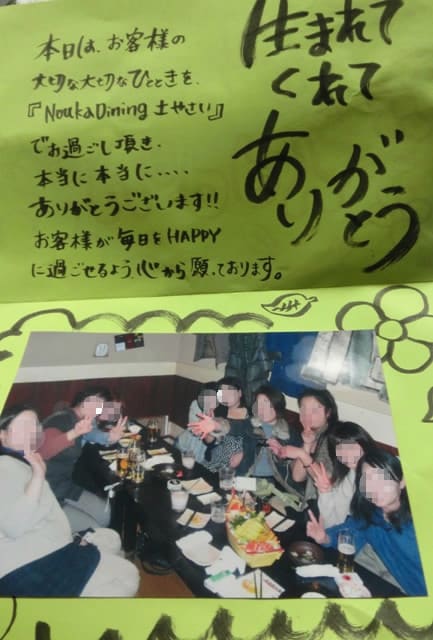 本日は、お客様の
大切な大切なひとときを、
『NoukaDining 土やさい』
でお過ごし頂き、
本当に本当に‥‥
ありがとうございます!!
お客様が毎日をHAPPY
に過ごせるよう、心から願っております。
生まれて
くれて
ありがとう